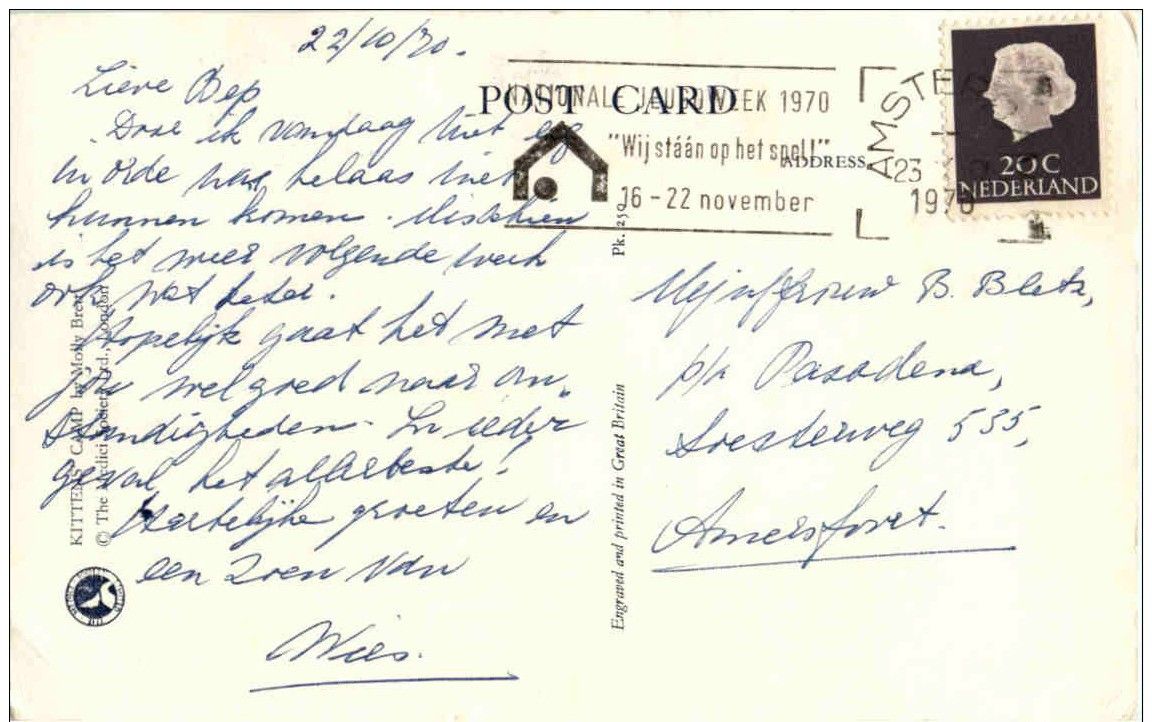 22/10/70.
Lieve Bep
Daar ik vandaag niet erg
in orde was helaas niet
kunnen komen. Misschien
is het weer volgende week
ook wat beter.
Hopelijk gaat het met
jou wel goed naar om-
standigheden. In ieder
geval het allerbeste!
Hartelijke groeten en
een zoen van
Wies.
POST CARD
NATIONALE JEUGDWEEK 1970
"Wij stáán op het spel!"
16 - 22 november
AMSTERDAM
23
1970
20C
NEDERLAND
ADDRESS
Mejuffrouw B. Bletz,
p/a Pasadena,
Soesterweg 535,
Amersfoort.
KITTENS' CAMP by Molly Brett
© The Medici Society Ltd., London
Pk. 250
Engraved and printed in Great Britain